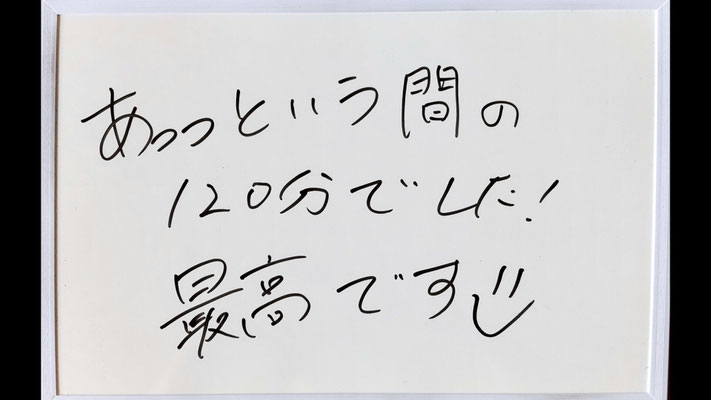 あっっという間の
120分でした!
最高です